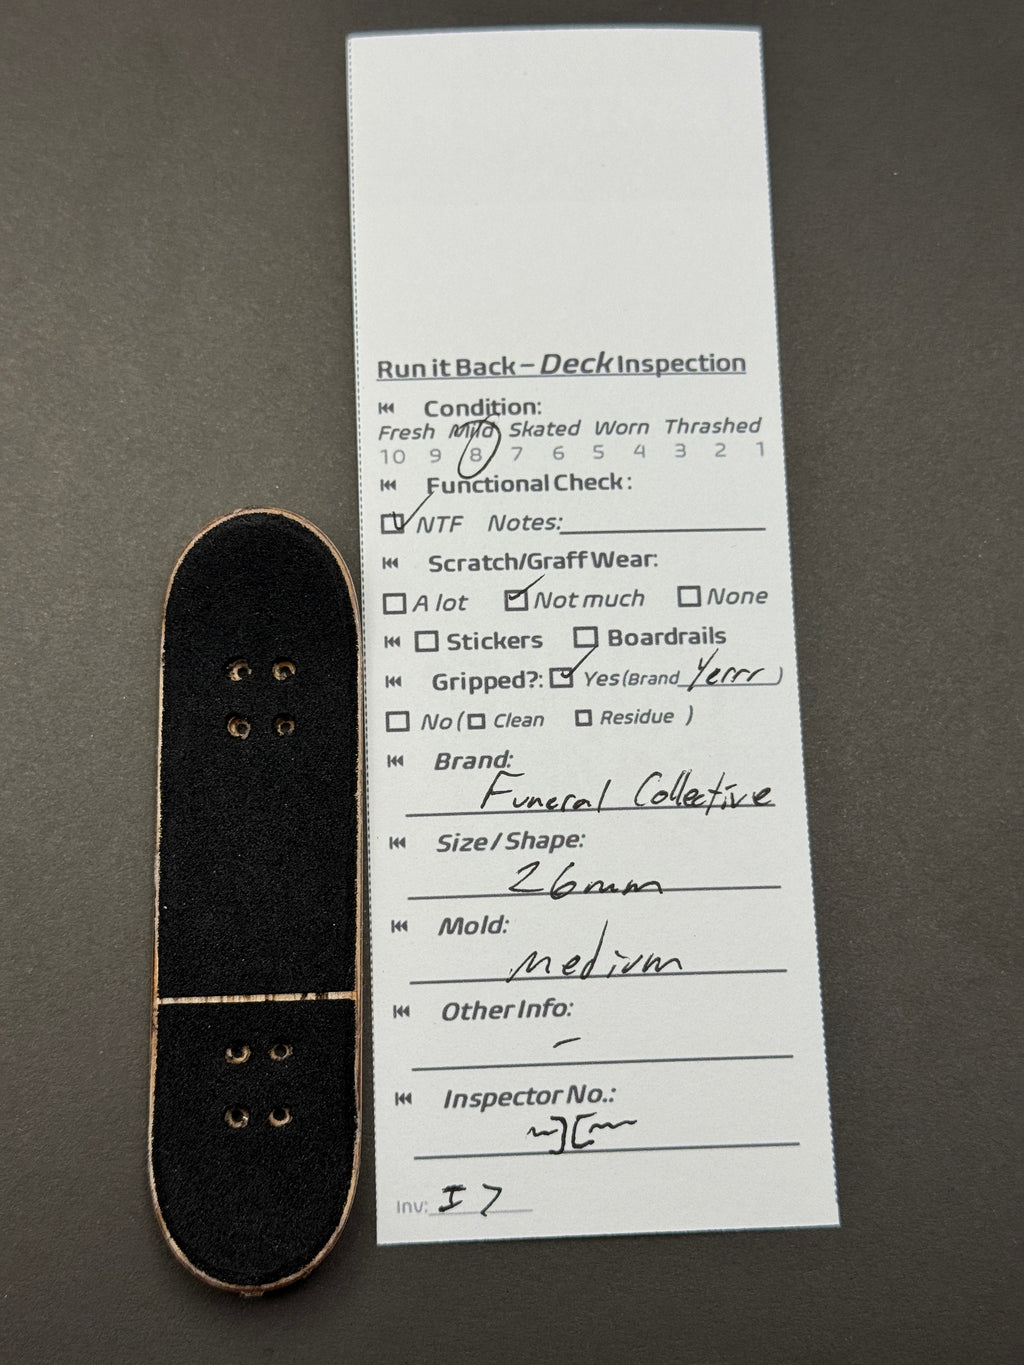 Run it Back – Deck Inspection
Condition:
Fresh Mild Skated Worn Thrashed
10 9 8 7 6 5 4 3 2 1
Functional Check:
NTF Notes:
Scratch/Graff Wear:
A lot Not much None
Stickers Boardrails
Gripped?: Yes (Brand Yerrr )
No ( Clean Residue )
Brand:
Funeral Collective
Size / Shape:
26mm
Mold:
Medium
Other Info:
–
Inspector No.:
Inv: I7